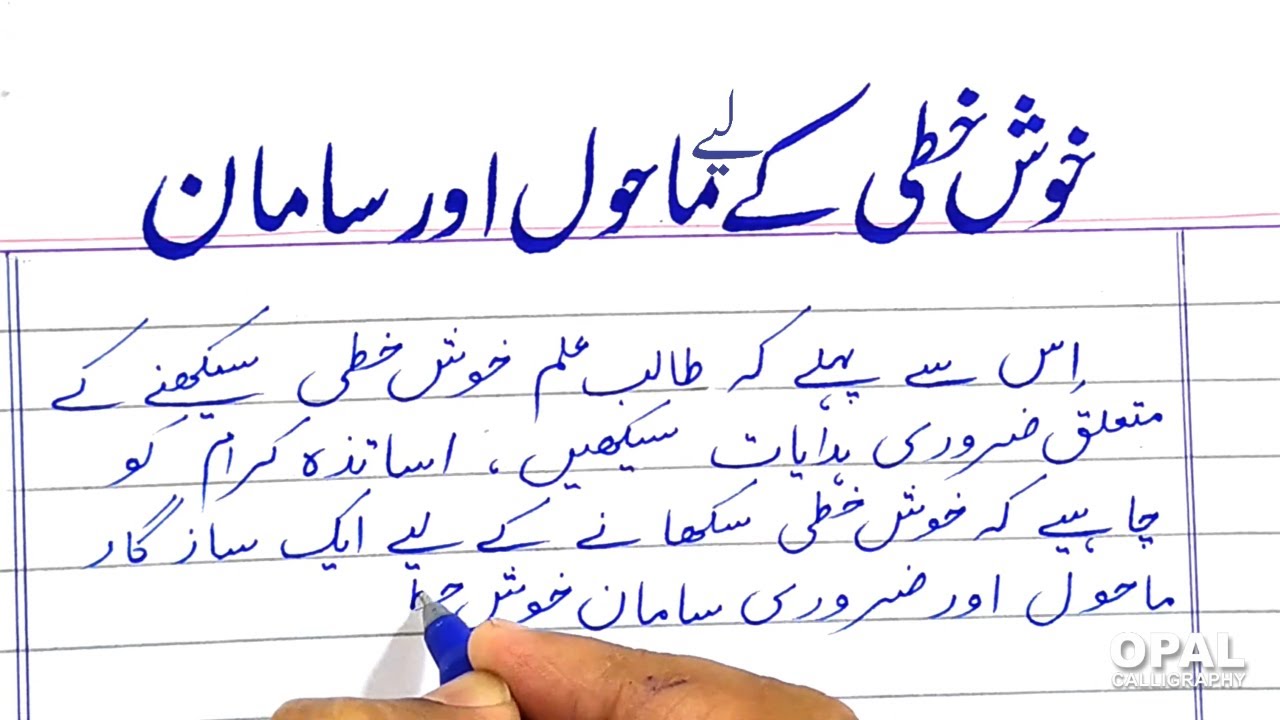 خوش خطی کے لیے ماحول اور سامان
اِس سے پہلے کہ طالب علم خوش خطی سیکھنے کے
متعلق ضروری ہدایات سیکھیں، اساتذہ کرام کو
چاہیے کہ خوش خطی سکھانے کے لیے ایک ساز گار
ماحول اور ضروری سامان خوش
OPAL
CALLIGRAPHY